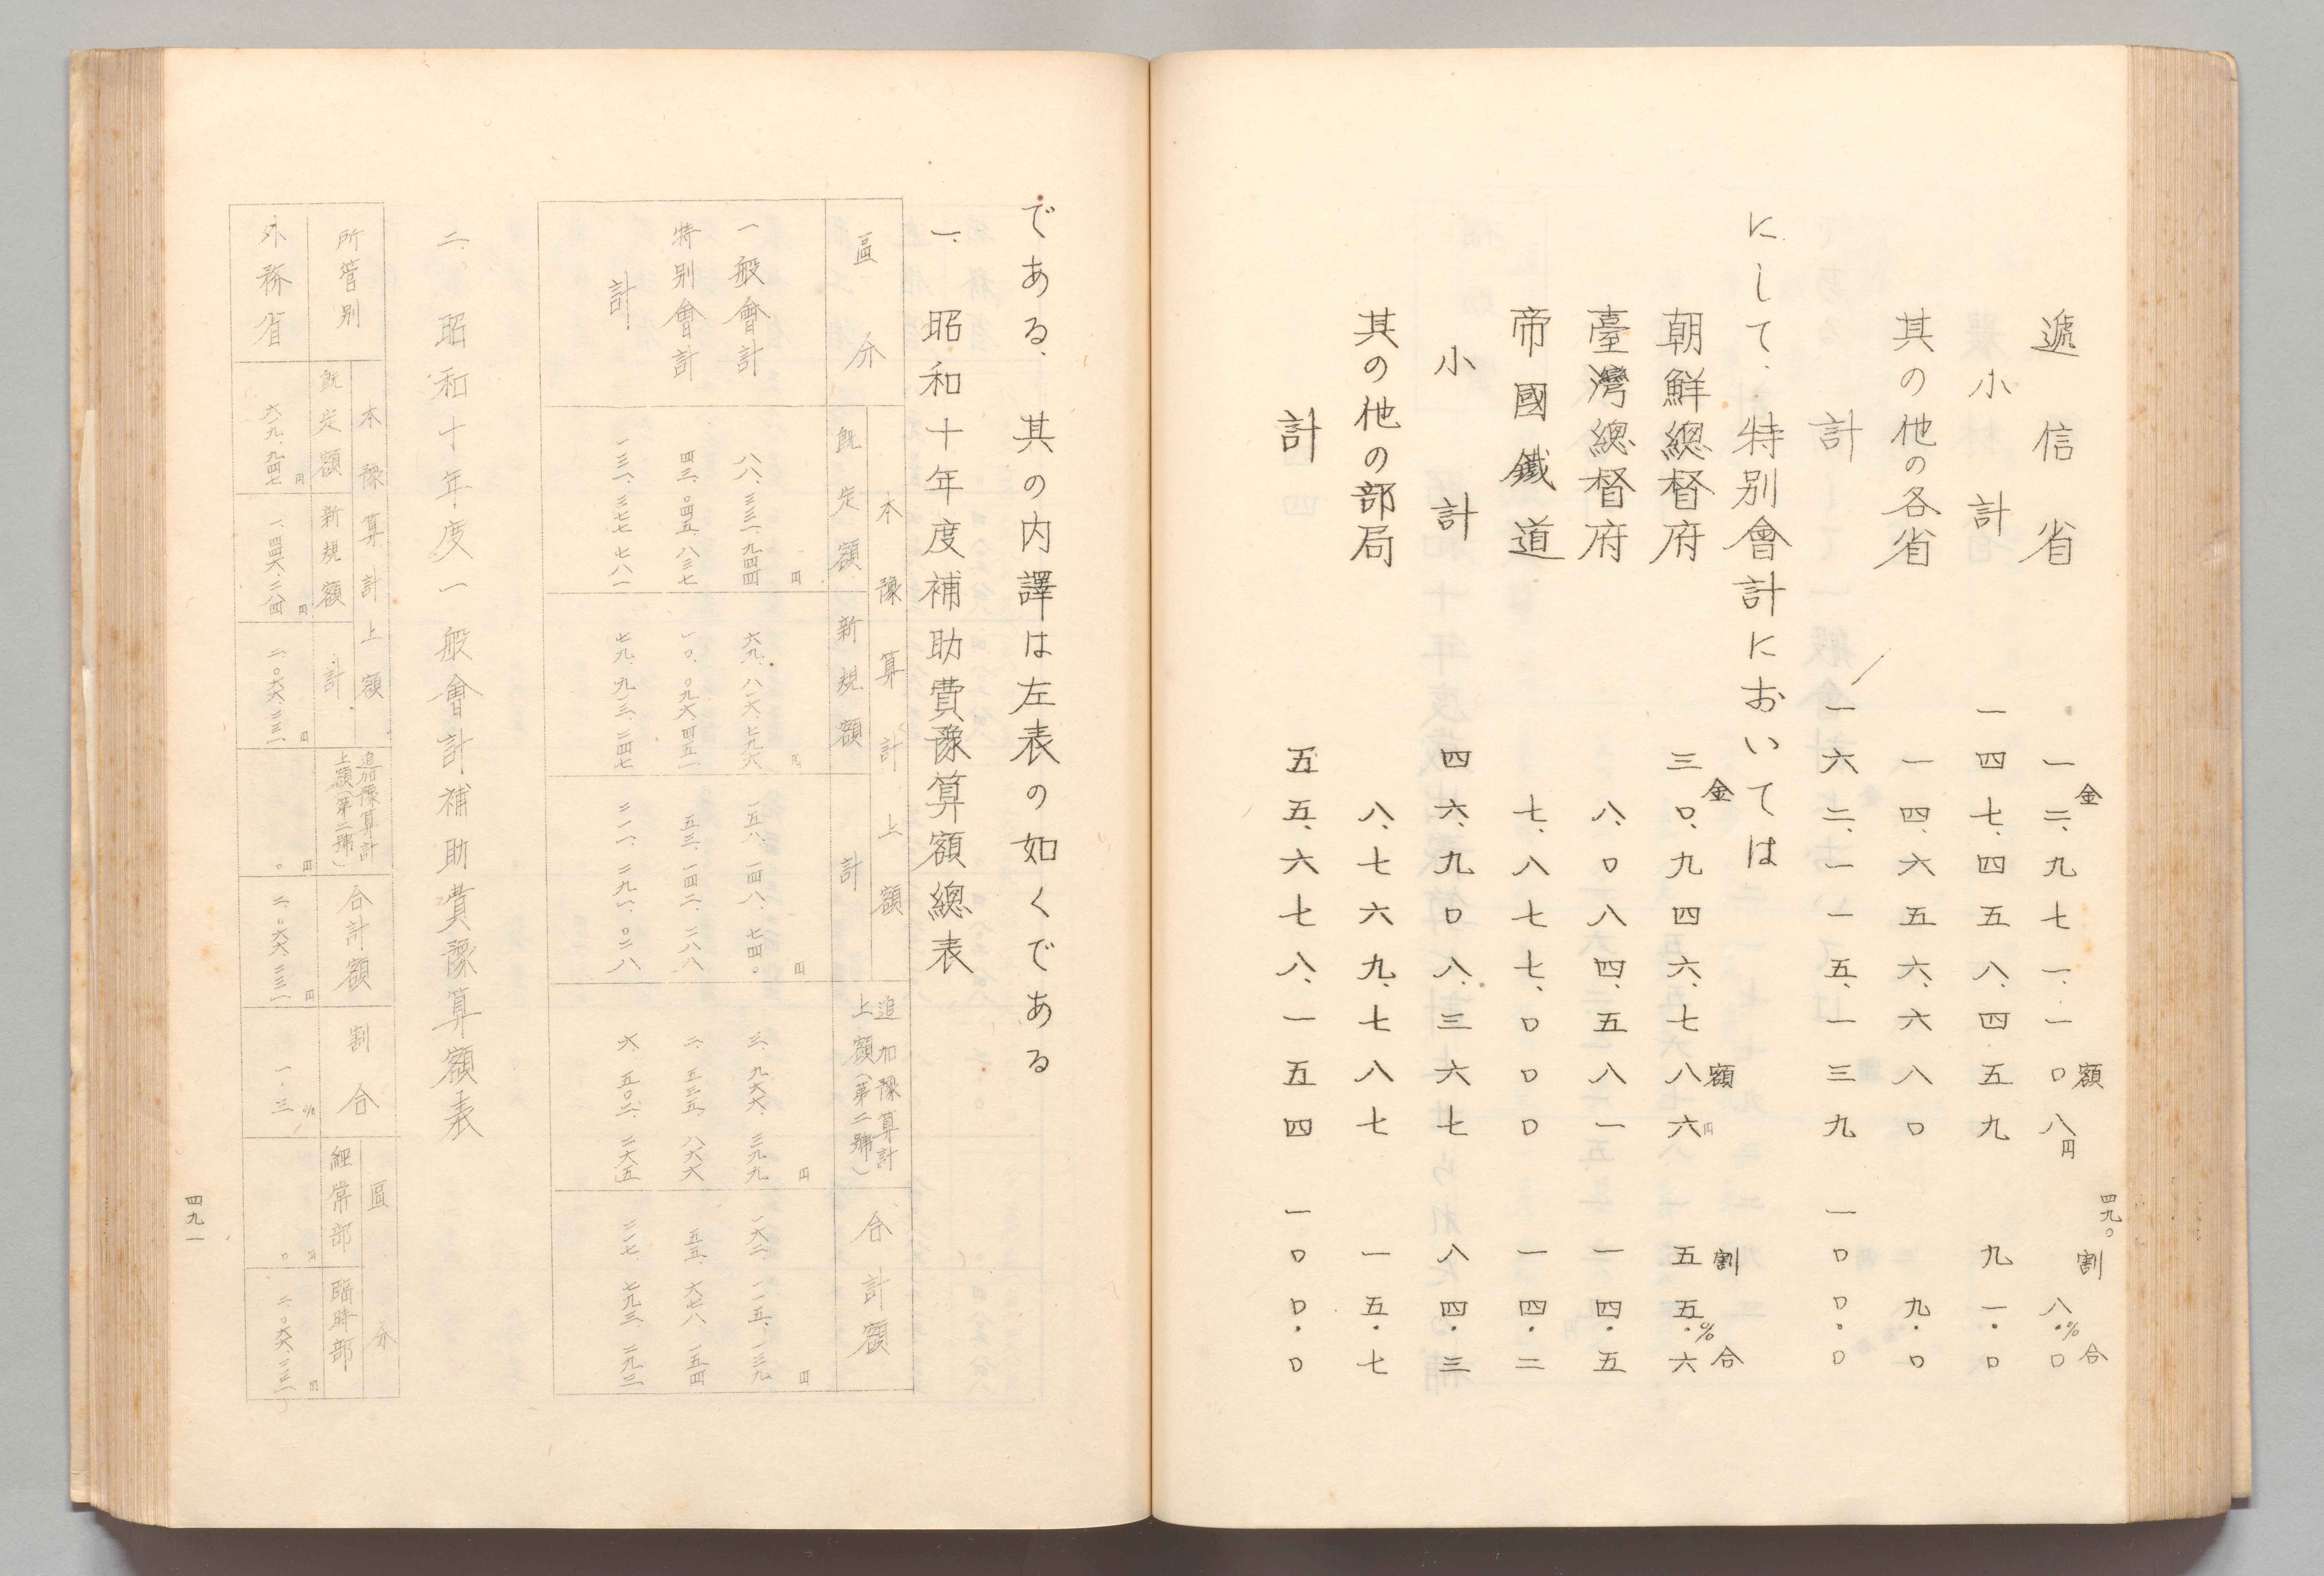 四九〇
金額 割合
遞信省 一二、九七一、一〇八円 八.〇%
小計 一四七、四五八、四五九 九一.〇
其の他の各省 一四、六五六、六八〇 九.〇
計 一六二、一一五、一三九 一〇〇.〇
にして、特別會計においては
金額 割合
朝鮮總督府 三〇、九四六、七八六円 五五.六%
臺灣總督府 八、〇八四、五八一 一四.五
帝國鐵道 七、八七七、〇〇〇 一四.二
小計 四六、九〇八、三六七 八四.三
其の他の部局 八、七六九、七八七 一五.七
計 五五、六七八、一五四 一〇〇.〇
である、其の内譯は左表の如くである
一、昭和十年度補助費豫算額總表
區分 本豫算計上額 追加豫算計上額(第二號) 合計額
既定額 新規額 計
一般會計 八八、三三一、九四四円 六九、八一六、七九六円 一五八、一四八、七四〇円 三、九六六、三九九円 一六二、一一五、一三九円
特別會計 四三、〇四五、八三七 一〇、〇九六、四五一 五三、一四二、二八八 二、五三五、八六六 五五、六七八、一五四
計 一三一、三七七、七八一 七九、九一三、二四七 二一一、二九一、〇二八 六、五〇二、二六五 二一七、七九三、二九三
二、昭和十年度一般會計補助費豫算額表
所管別 本豫算計上額 追加豫算計上額(第二號) 合計額 割合 區分
既定額 新規額 計 経常部 臨時部
外務省 六一九、九四七円 一、四四六、二八四円 二、〇六六、二三一円 〇円 二、〇六六、二三一円 一.三% 〇円 二、〇六六、二三一円
四九一